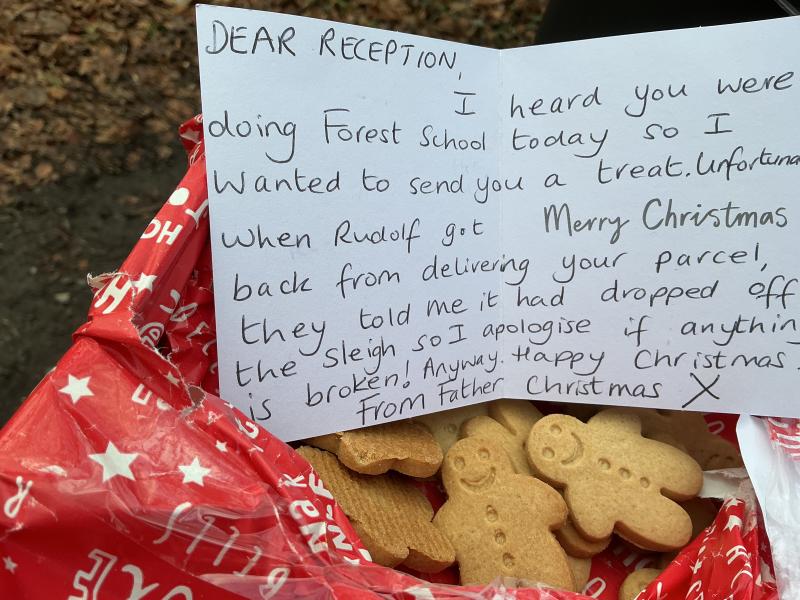 DEAR RECEPTION,
I heard you were
doing Forest School today so I
Wanted to send you a treat. Unfortuna
when Rudolf got
Merry Christmas
back from delivering your parcel,
they told me it had dropped off
the sleigh so I apologise if anythin
is broken! Anyway. Happy Christmas.
From Father Christmas X
HO